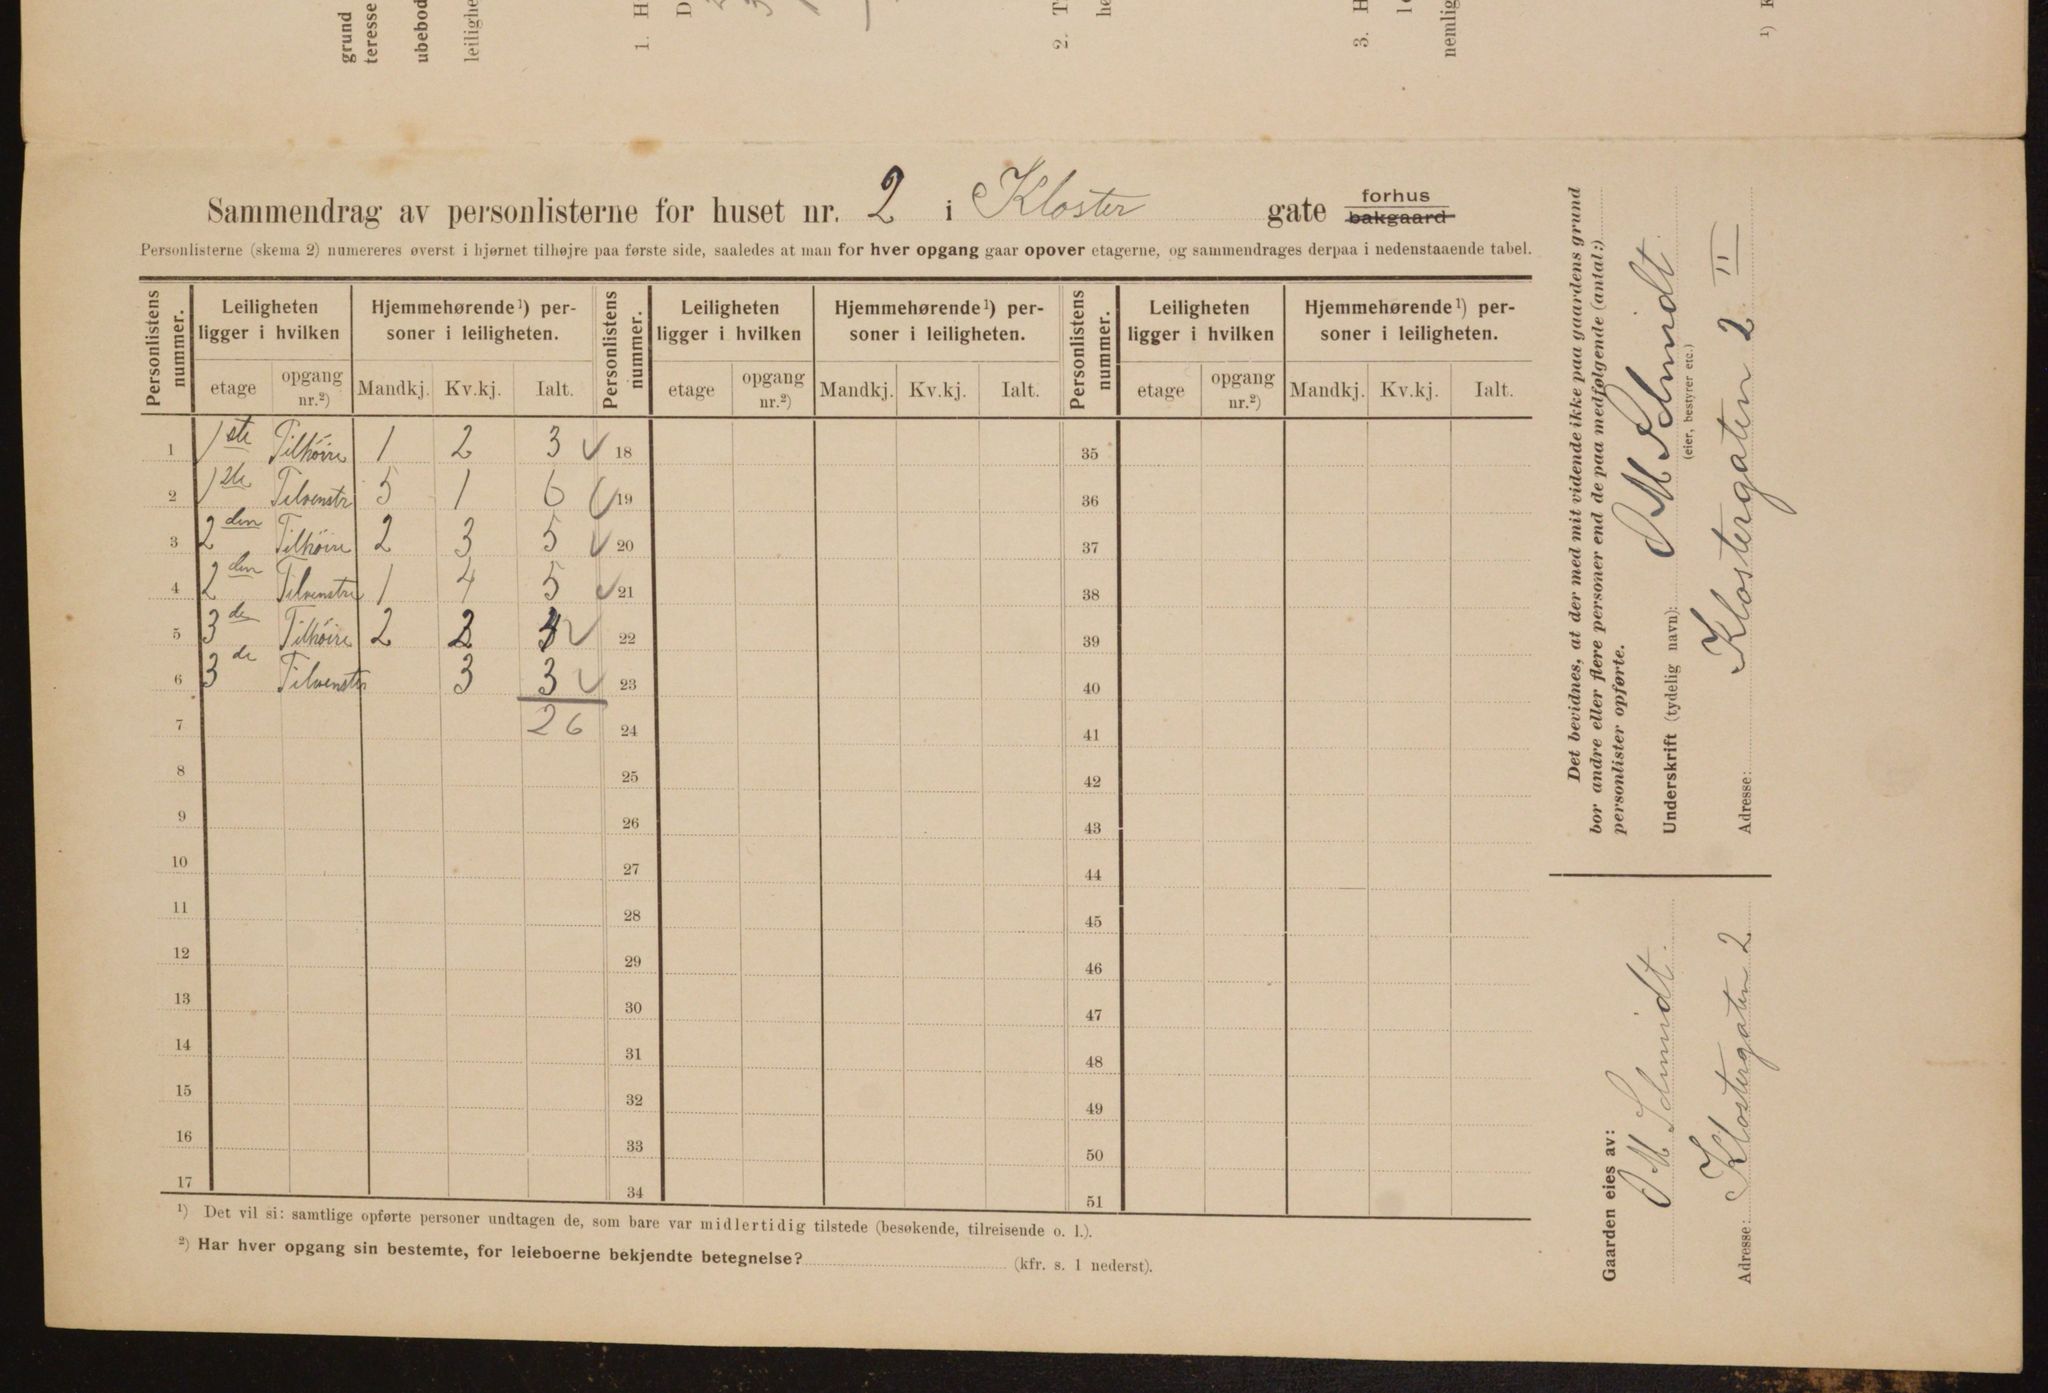 grund
teresse
ubebod
leilighe
1. H
D
2. T
he
3. H
le
nemlig
¹) K
Sammendrag av personlisterne for huset nr. 2 i Kloster gate forhus
bakgaard
Personlisterne (skema 2) numereres øverst i hjørnet tilhøjre paa første side, saaledes at man for hver opgang gaar opover etagerne, og sammendrages derpaa i nedenstaaende tabel.
Personlistens nummer. Leiligheten ligger i hvilken Hjemmehørende ¹) personer i leiligheten. Personlistens nummer. Leiligheten ligger i hvilken Hjemmehørende ¹) personer i leiligheten. Personlistens nummer. Leiligheten ligger i hvilken Hjemmehørende ¹) personer i leiligheten.
etage opgang nr.²) Mandkj. Kv.kj. Ialt. etage opgang nr.²) Mandkj. Kv.kj. Ialt. etage opgang nr.²) Mandkj. Kv.kj. Ialt.
1 1ste Tilhöire 1 2 3 ✓ 18 35
2 1ste Tilvenstr 5 1 6 ✓ 19 36
3 2den Tilhöire 2 3 5 ✓ 20 37
4 2den Tilvenstre 1 4 5 ✓ 21 38
5 3de Tilhöire 2 2 4 ✓ 22 39
6 3de Tilvenstr 3 3 ✓ 23 40
7 26 24 41
8 25 42
9 26 43
10 27 44
11 28 45
12 29 46
13 30 47
14 31 48
15 32 49
16 33 50
17 34 51
¹) Det vil si: samtlige opførte personer undtagen de, som bare var midlertidig tilstede (besøkende, tilreisende o. l.).
²) Har hver opgang sin bestemte, for leieboerne bekjendte betegnelse? (kfr. s. 1 nederst).
Det bevidnes, at der med mit vidende ikke paa gaardens grund
bor andre eller flere personer end de paa medfølgende (antal:)
personlister opførte.
Underskrift (tydelig navn): M Schmidt.
(eier, bestyrer etc.)
Adresse: Klostergaten 2 II
Gaarden eies av:
M Schmidt.
Adresse: Klostergaten 2